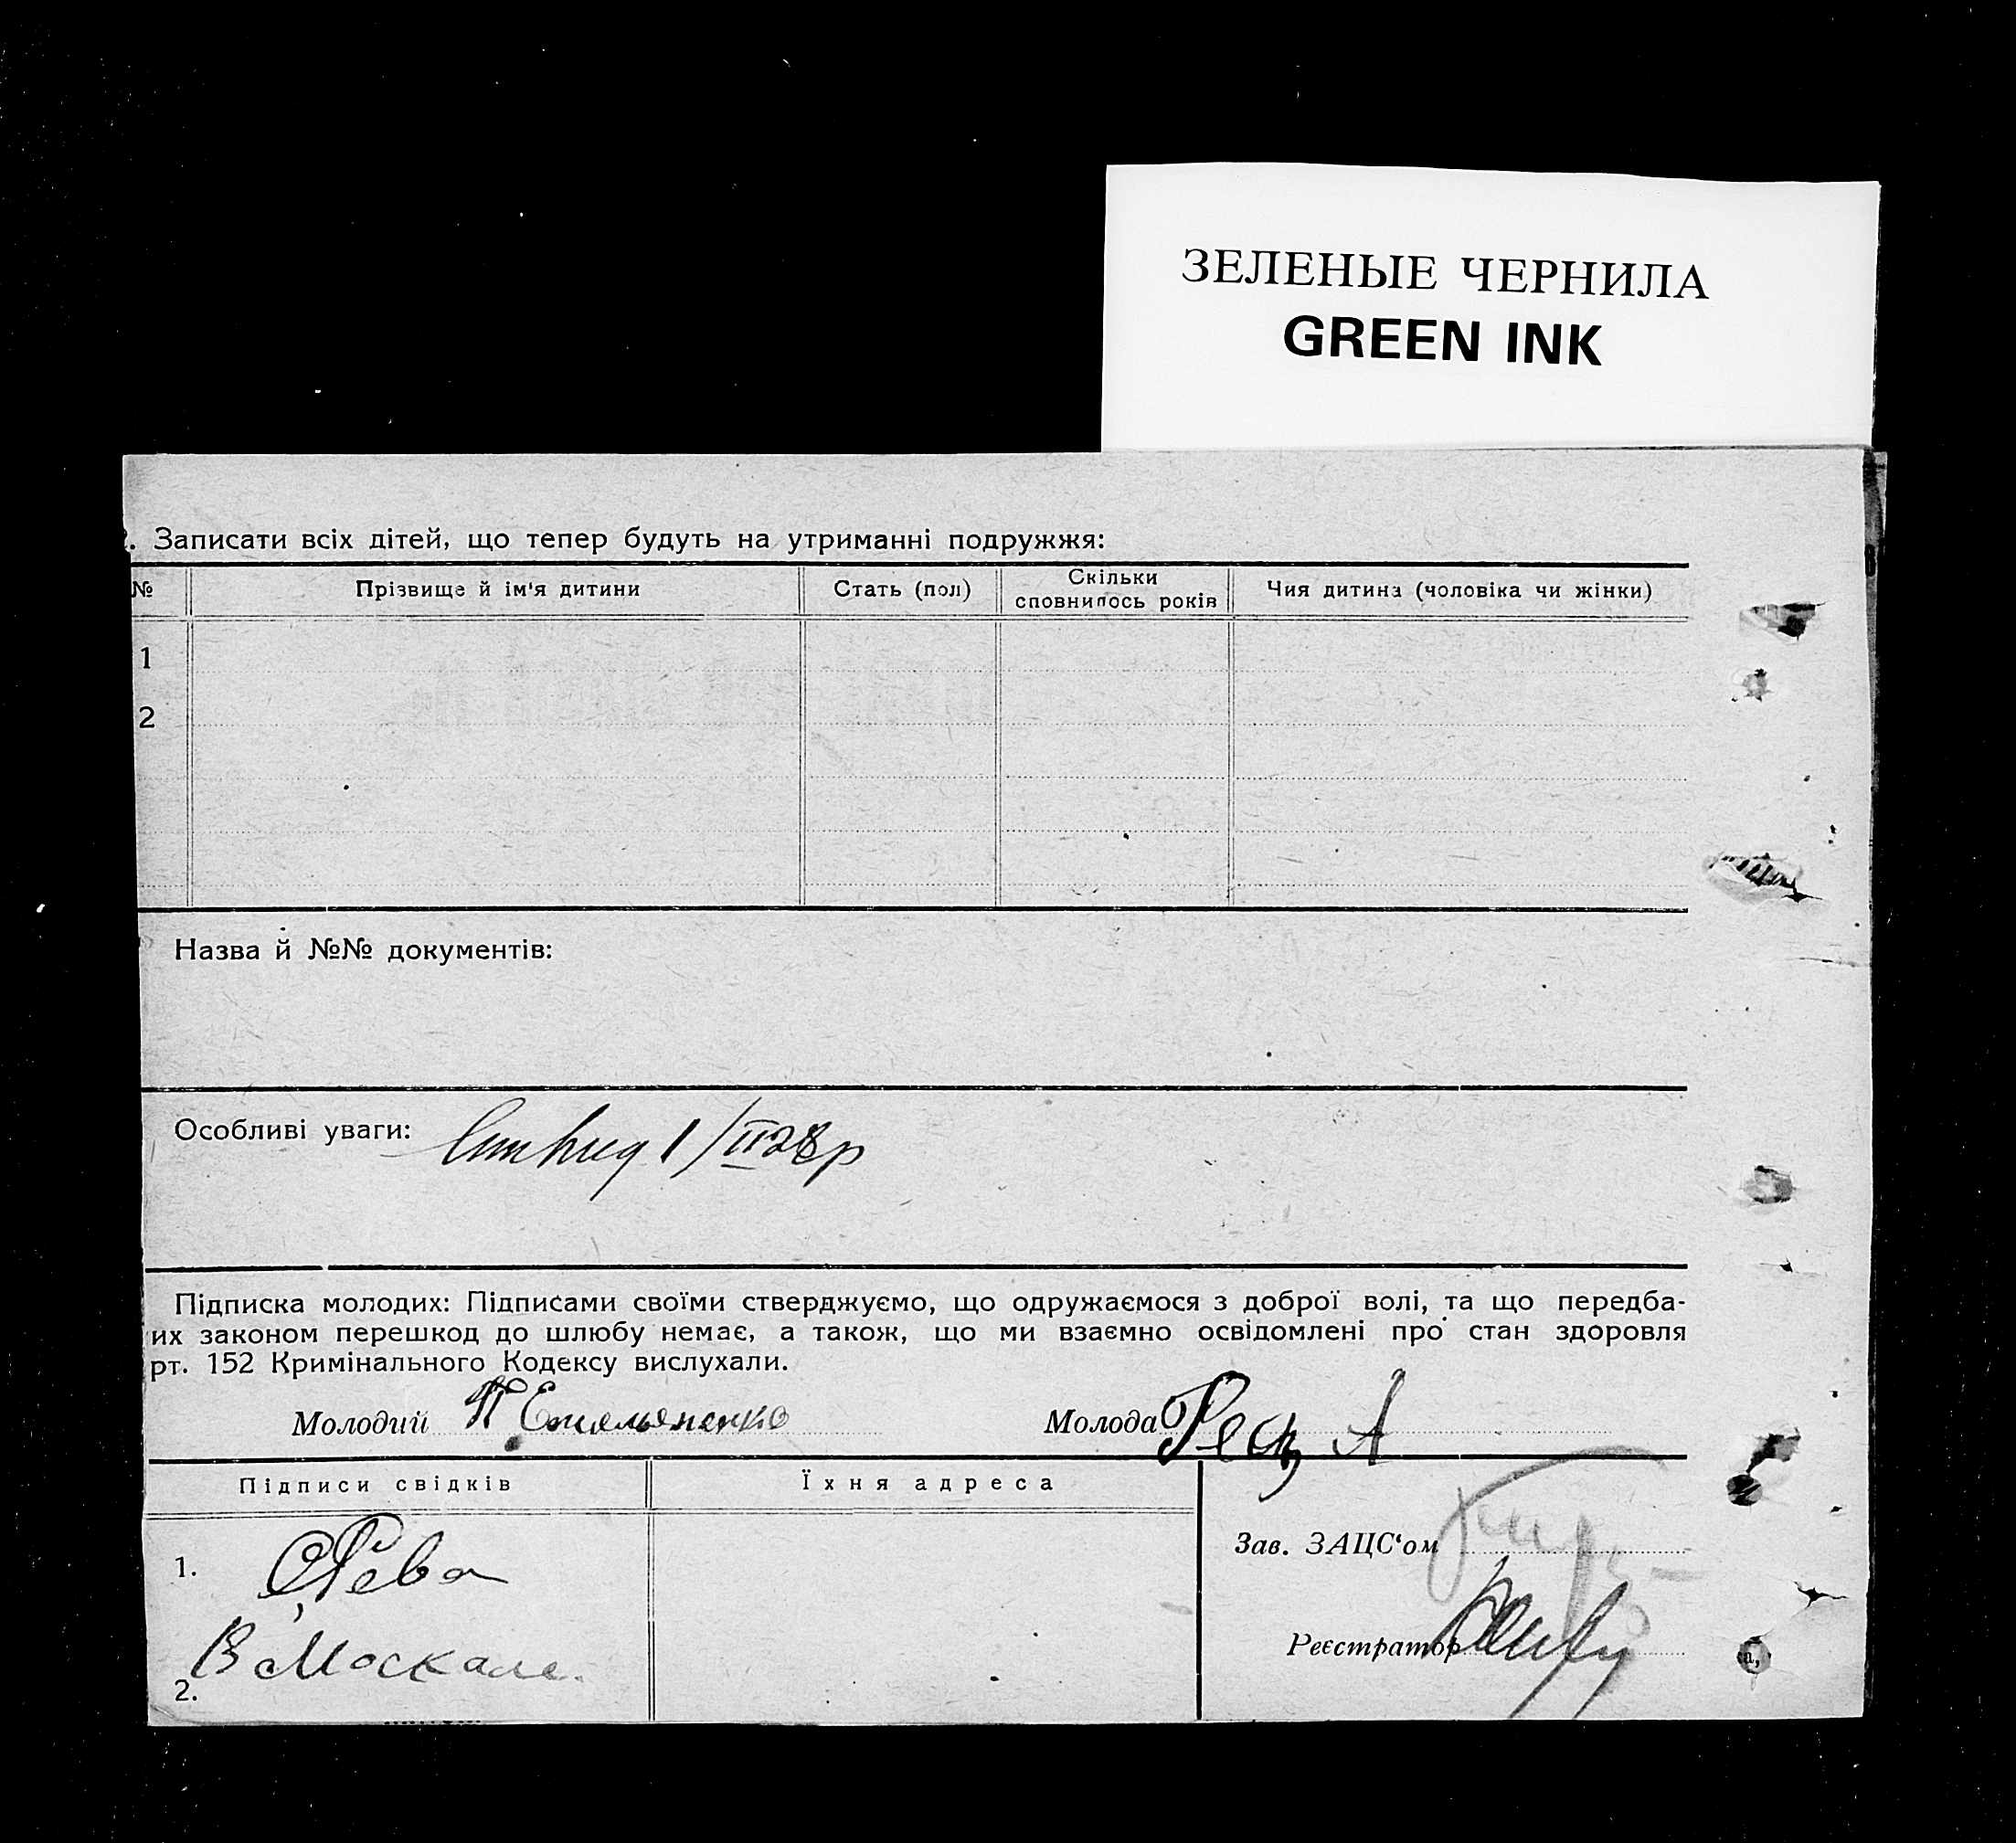 ЗЕЛЕНЫЕ ЧЕРНИЛА
GREEN INK
. Записати всіх дітей, що тепер будуть на утриманні подружжя:
№ Прізвище й ім'я дитини Стать (пол) Скільки сповнилось років Чия дитина (чоловіка чи жінки)
1
2
Назва й №№ документів:
Особливі уваги: 1/II 28р
Підписка молодих: Підписами своїми стверджуємо, що одружаємося з доброї волі, та що передба-
их законом перешкод до шлюбу немає, а також, що ми взаємно освідомлені про стан здоровля
рт. 152 Кримінального Кодексу вислухали.
Молодий П Емельяненко Молода А
Підписи свідків Їхня адреса
Зав. ЗАЦС'ом
1. Рева
Реєстратор
В Москале
2.